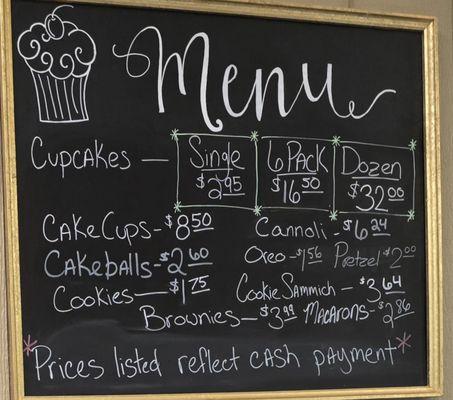 Menu
Cupcakes — Single 6 Pack Dozen
$2.95 $16.50 $32.00
Cake Cups - $8.50 Cannoli - $6.24
Cakeballs - $2.60 Oreo - $1.56 Pretzel $2.00
Cookies — $1.75 Cookie Sammich - $3.64
Brownies - $3.99 Macarons - $2.86
*Prices listed reflect cash payment*